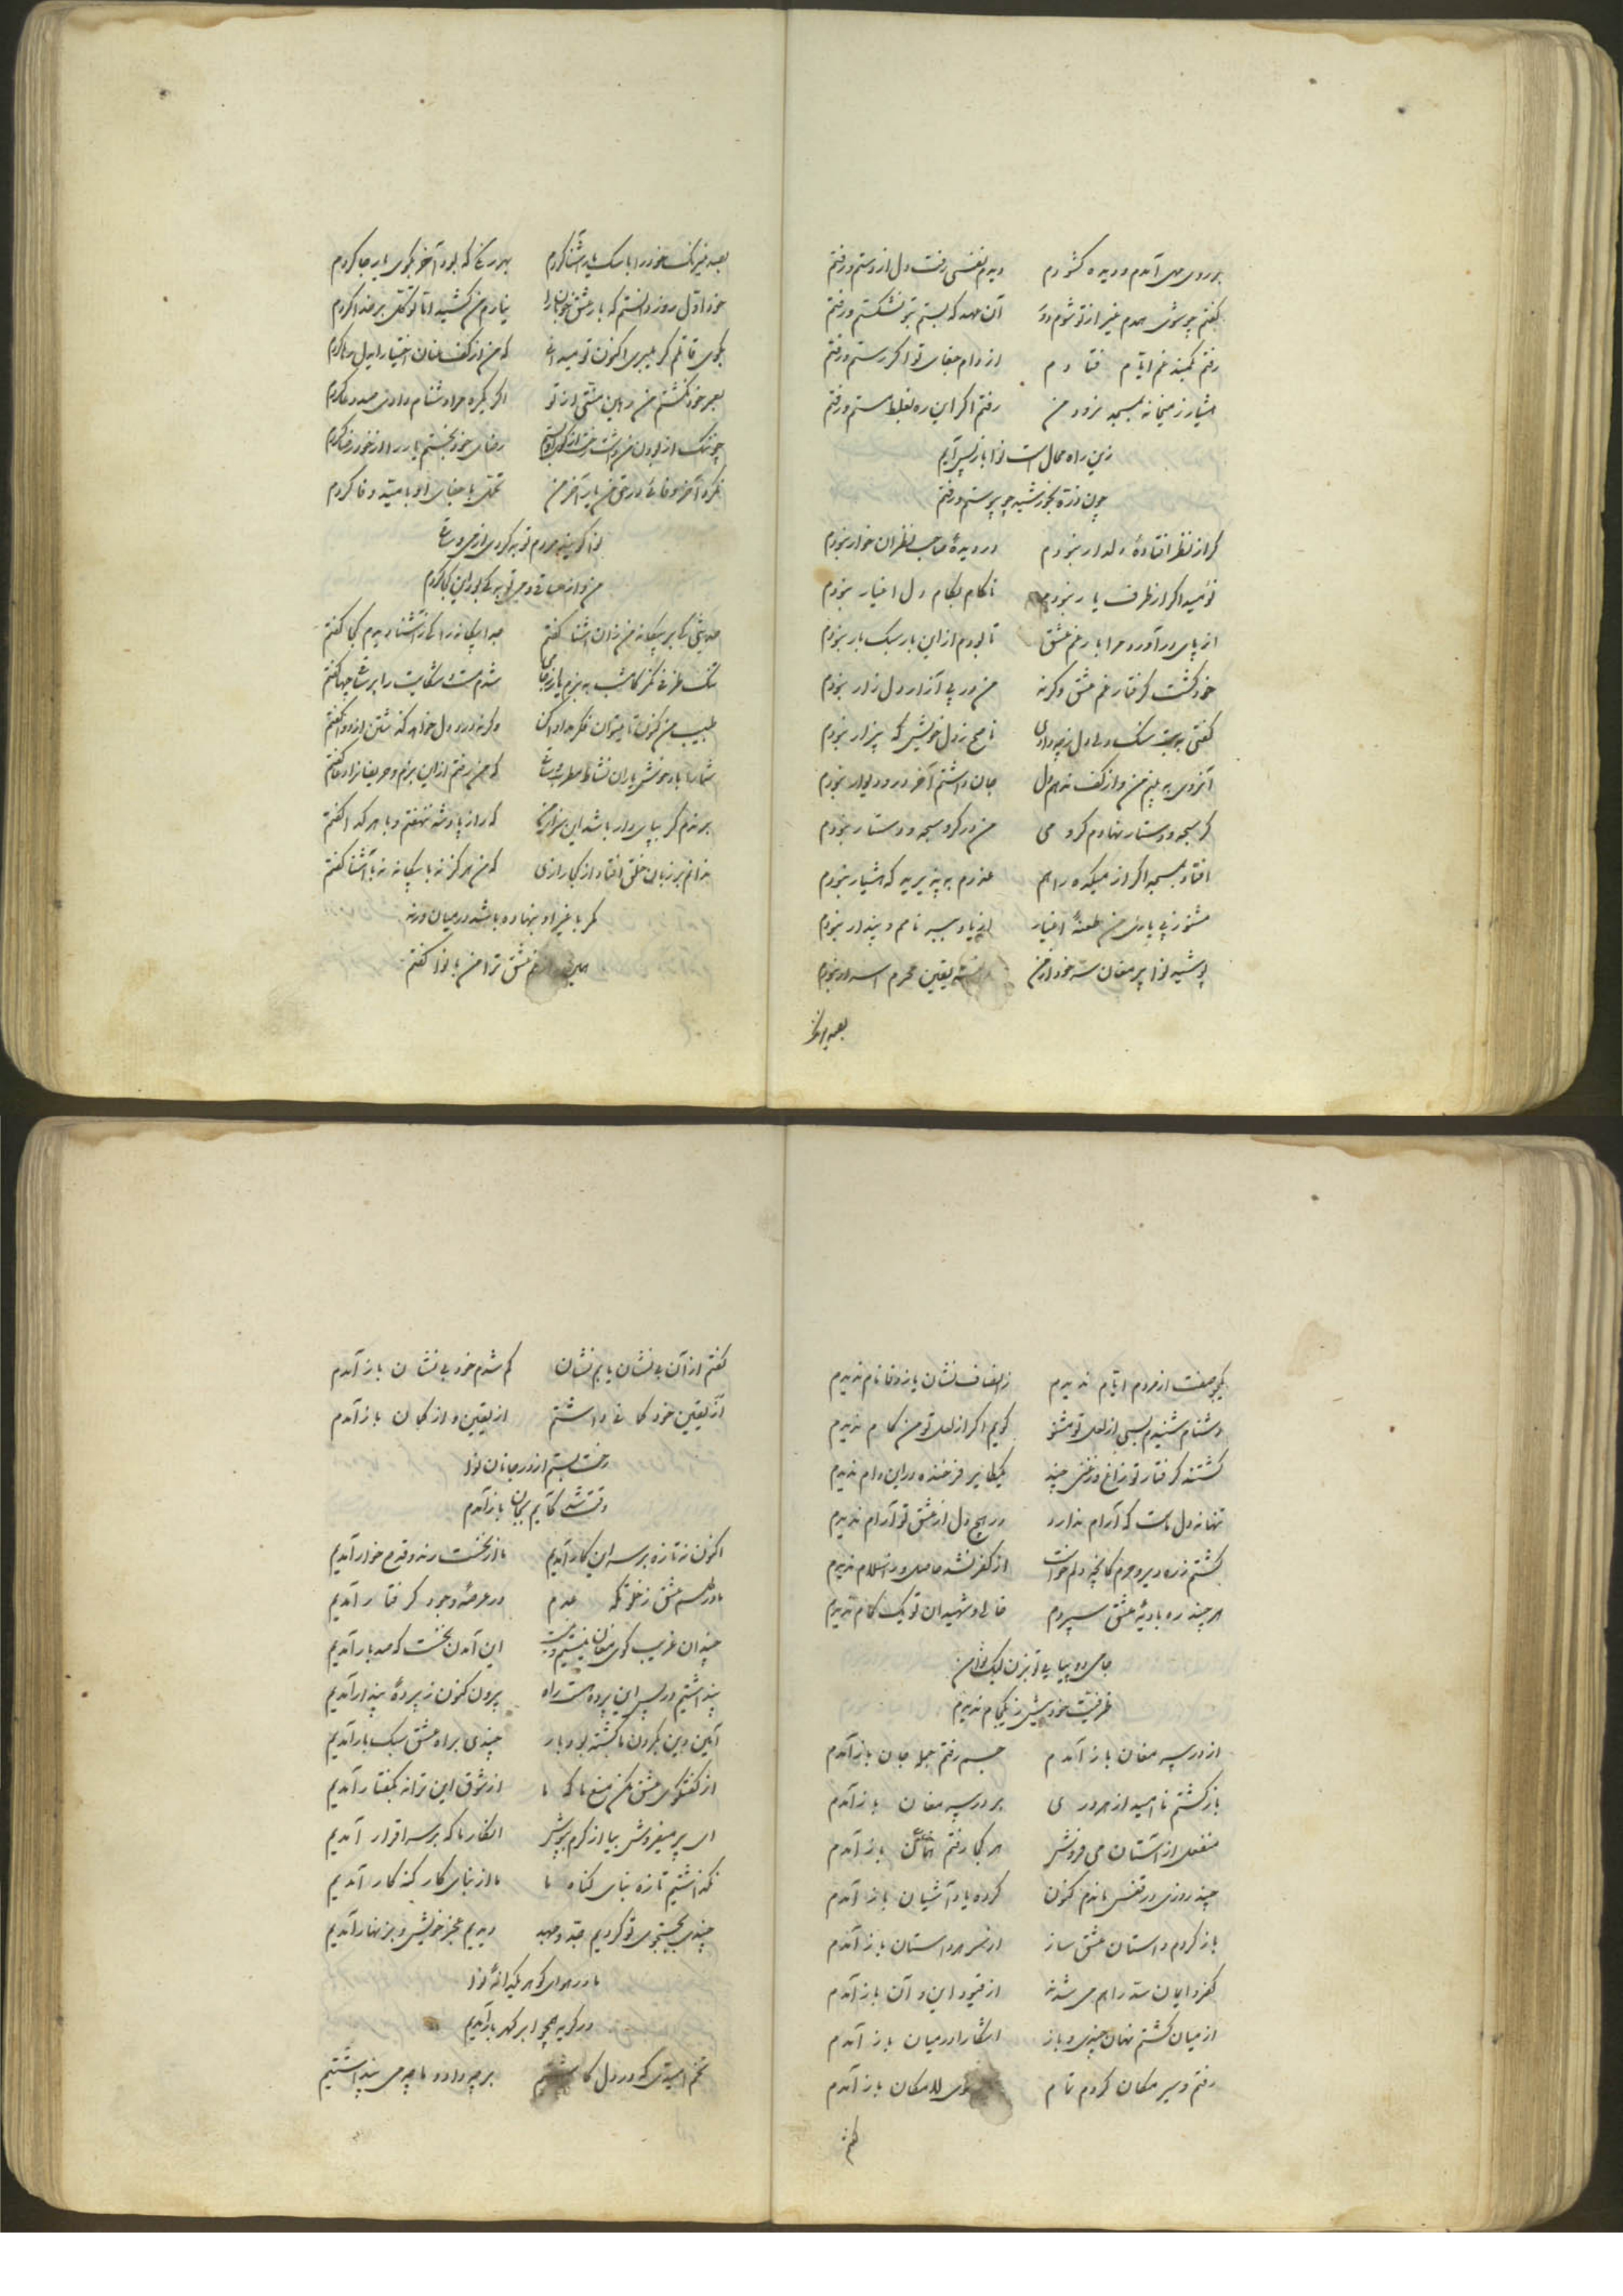 بر روی می آمدم و دیده کشودم دیدم نفسی رفت دل از دستم و رفتم
گفتم چو شوی همدم غیر از تو شوم دور آن عهد که بستم بتو نشکستم و رفتم
رفتم بکمند غم ایام فتادم از دام جفای تو اگر رستم و رفتم
هشیار ز میخانه بمسجد نرود من رفتم اگر این ره بغلط مستم و رفتم
زین راه محال است نوا باز پس آیم
چون ذره بخورشید چو پیوستم و رفتم
گر از نظر افتادهٔ دلدار نبودم در دیدهٔ صاحب نظران خوار نبودم
نومید اگر از طرف یار نبودم ناکام بکام دل اغیار نبودم
از پای درآورد مرا بار غم عشق تا بودم از این بار سبک بار نبودم
خود گشت گرفتار غم عشق وگرنه من در پی آزار دل زار نبودم
گفتی به بت سنگ دلی دل ز چه دادی ناصح ز دل خویش که بیزار نبودم
آنروی به بینم من و از کف ندهم دل جان داشتم آخر در و دیوار نبودم
گر سبحه و دستار نهادم گرو می من در گرو سبحه و دستار نبودم
افتاد بمسجد اگر از میکده راهم عذرم به پذیرید که هشیار نبودم
مشنو ز پی یاری من طعنهٔ اغیار
پوشید نوا پیر مغان سر خود از من یقین محرم اسرار نبودم
بصد نیرنگ
بصد نیرنگ خود را با سگ یار آشنا کردم بهر رنگی که بود آخر بکوی یار جا کردم
خود اول روز دانستم که بار عشق خوبان را نیارم من کشید اما توکل بر خدا کردم
که من از کف عنان اختیار ایدل رها کردم
بعمر خود نگشتم من رهین منتی از تو اگر یکره مرا دشنام دادی صد دعا کردم
رضای خود بجستم یار را از خود رضا کردم
نکرد آخر وفائی در حق من یار آخر من تحمل با جفای او بامید وفا کردم
نوا گوئید مردم توبه کردی از می و ساقی
من و از ساقی و می توبه کی بود این کجا کردم
حدیثی کی به بیگانه من زان آشنا گفتم چه بیگانه را کی ز آشنا دیدم کجا گفتم
شدم مست و شکایت را بر ساقی چها گفتم
طبیب من کنون تا میتوان فکر مداوا کن وگرنه درد دل خواهد گذشتن از دوا گفتم
شما را باد خوش یاران نشاط مطرب و ساقی که من رفتم از این بزم و حریفانرا دعا گفتم
که راز پادشه ننهفتم و با هر گدا گفتم
ندانم بر زبان خلق افتاد از کجا رازی که من هرگز نه با بیگانه نه با آشنا گفتم
مگر با غیر او بنهاده باشد در میان ورنه
غم عشق ترا من با نوا گفتم
یکجو صفت از مردم ایام ندیدم ز انصاف نشان یا ز وفا نام ندیدم
دشنام شنیدم بسی از لعل تو مشنو گویم اگر از لعل تو من کام ندیدم
گشتند گرفتار تو زاغ و زغنی چند یکطایر فرخنده در این دام ندیدم
تنها نه دل ماست که آرام ندارد در هیچ دل از عشق تو آرام ندیدم
گشتم ز ره دیر و حرم کانچه دلم خواست از کفر نشد حاصل و ز اسلام ندیدم
هر چند ره بادیهٔ عشق سپردم خالی ز شهیدان تو یک گام ندیدم
جامی دو پیاپی تو بزن لیک نوا من
ظرفیت خود بیش ز یکجام ندیدم
از در پیر مغان باز آمدم جسم رفتم جمله جان باز آمدم
باز گشتم نا امید از هر دری بر در پیر مغان باز آمدم
منفعل از آستان می فروش هر کجا رفتم همان باز آمدم
چند روزی در قفس ماندم کنون کرده یاد آشیان باز آمدم
باز کردم داستان عشق ساز از سر هر داستان باز آمدم
کفر و ایمان سد راهم می شدند از قیود این و آن باز آمدم
از میان گشتم نهان چندی و باز آشکارا در میان باز آمدم
رفتم و سیر مکان کردم تمام سوی لامکان باز آمدم
گفتم
گفتم از آن بی نشان یابم نشان گم شدم خود بی نشان باز آمدم
از یقین خود گمانی داشتم از یقین و از گمان باز آمدم
رخت بستم از در جانان نوا
وقت شد کآیم بجان باز آمدم
اکنون نه تازه بر سر این کار آمدیم ما از نخست رند و قدح خوار آمدیم
ما در طلسم عشق ز خلوتگه عدم در عرصهٔ وجود گرفتار آمدیم
چندان غریب کوی مغان نیستیم این آمدن نخست که صد بار آمدیم
پنداشتیم در پس این پرده هست راه بیرون کنون ز پردهٔ پندار آمدیم
آئین و دین بگردن ما گشته بود بار چندی براه عشق سبک بار آمدیم
از گفتگوی عشق مکن منع ما که ما از شوق این ترانه بگفتار آمدیم
ای پیر میفروش بیا از کرم بپوش انکار ما که بر سر اقرار آمدیم
نگذاشتیم تازه بنای گناه ما ما از بنای کار گنه کار آمدیم
چندی بجستجوی تو کردیم جد و جهد دیدیم عجز خویش و بزنهار آمدیم
ما در هوای گوهر یکدانهٔ نوا
در گریه همچو ابر گهر بار آمدیم
تخم امیدی که در دل کاشتیم بر چه داد و ما چه می پنداشتیم